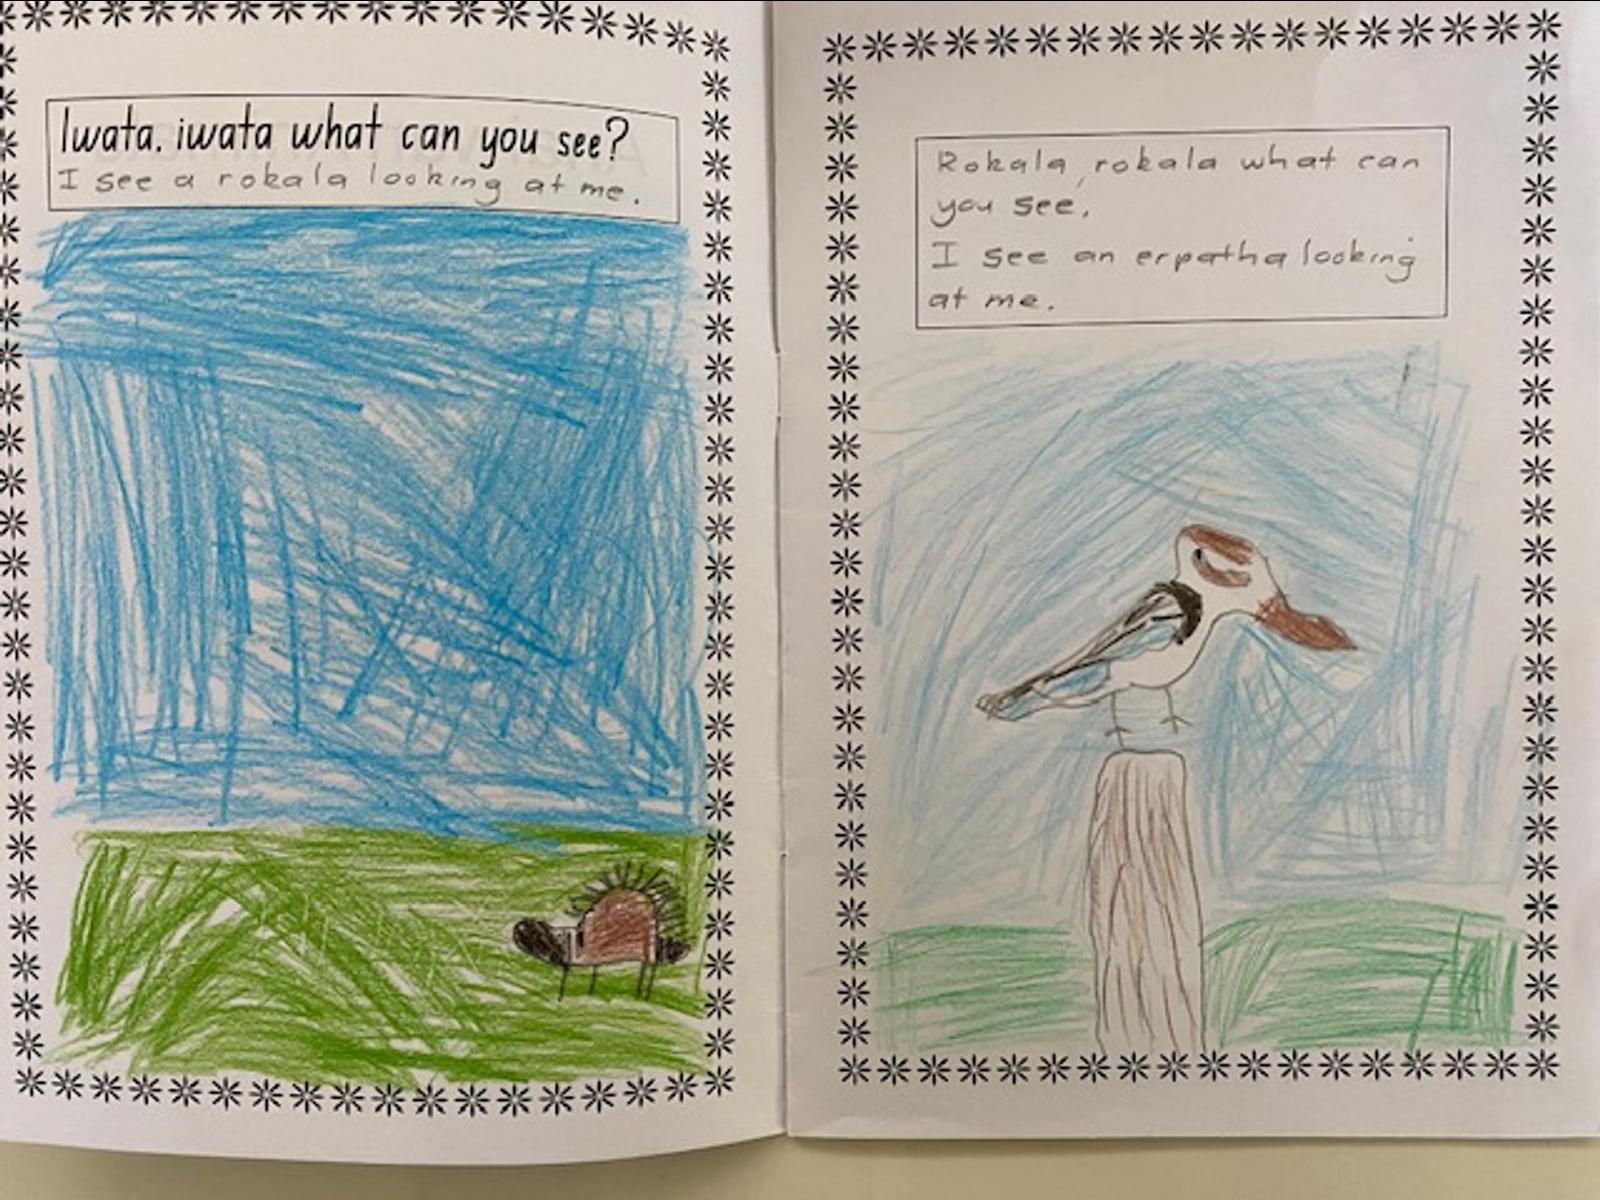 Iwata. iwata what can you see?
I see a rokala looking at me.
Rokala, rokala what can
you see,
I see an erpatha looking
at me.